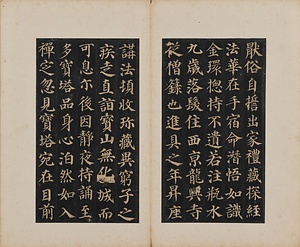 厭俗自誓出家禮藏探經
法華在手宿命潛悟如識
金環揔持不遺若注瓶水
九歲落髮住西京龍興寺
從僧籙也進具之年昇座
講法頓收珍藏異窮子之
疾走直詣寶山無城而
可息尔後因靜夜持誦至
多寶塔品身心泊然如入
禪定忽見寶塔宛在目前